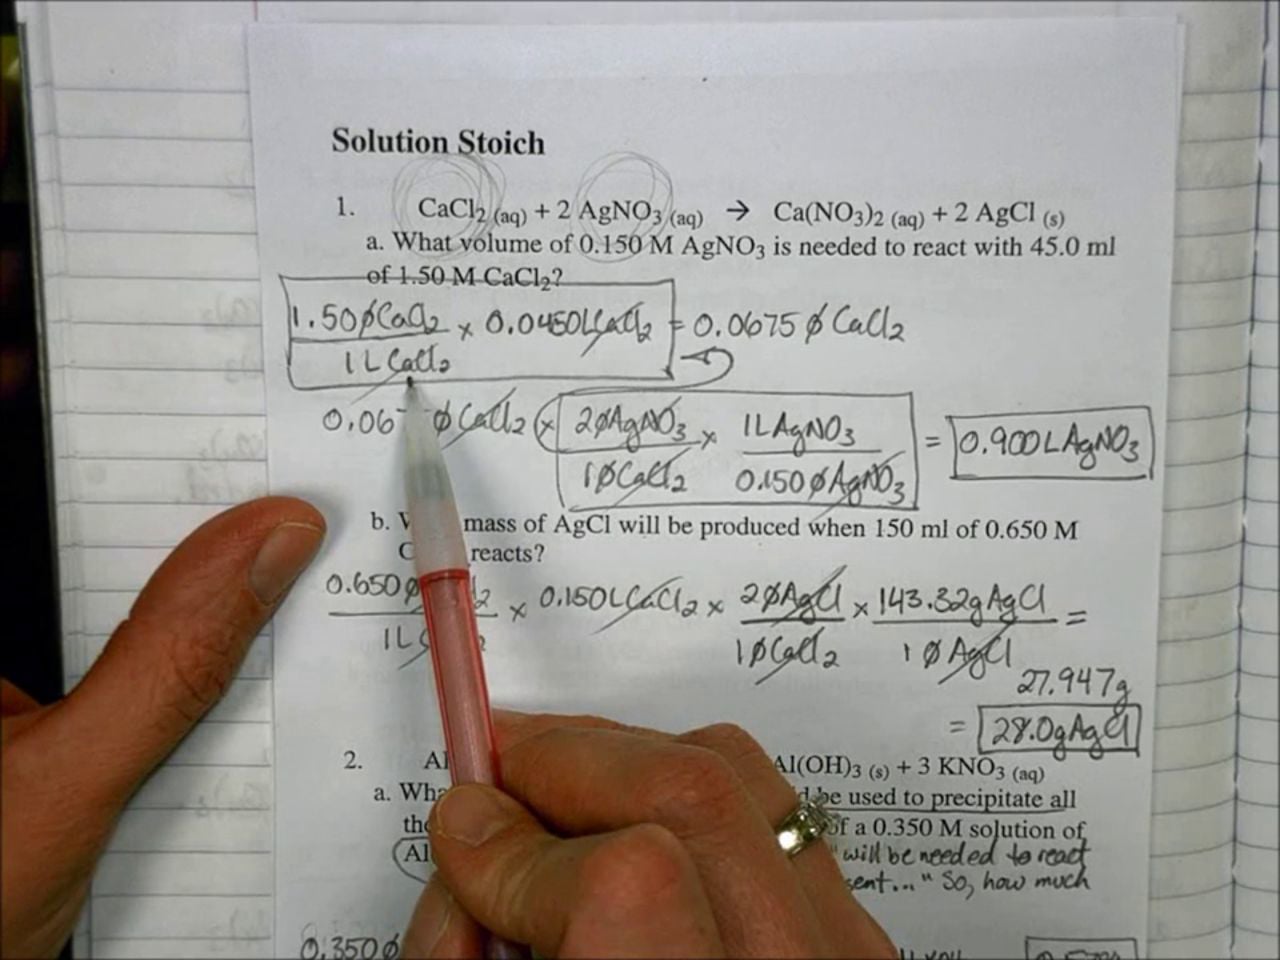 Solution Stoich
1. CaCl2 (aq) + 2 AgNO3 (aq) → Ca(NO3)2 (aq) + 2 AgCl (s)
a. What volume of 0.150 M AgNO3 is needed to react with 45.0 ml
of 1.50 M CaCl2?
1.50ϕCaCl2 x 0.0450LCaCl2 = 0.0675 ϕ CaCl2
1L CaCl2
ϕCaCl2 x 2ϕAgNO3 x 1LAgNO3 = 0.900LAgNO3
1ϕCaCl2 0.150ϕAgNO3
b. mass of AgCl will be produced when 150 ml of 0.650 M
reacts?
0.650ϕ x 0.150LCaCl2 x 2ϕAgCl x 143.32gAgCl =
1L 1ϕCaCl2 1ϕAgCl
27.947g
= 28.0gAgCl
2. Al(OH)3 (s) + 3 KNO3 (aq)
a. be used to precipitate all
of a 0.350 M solution of
"will be needed to react
So, how much
0.350ϕ